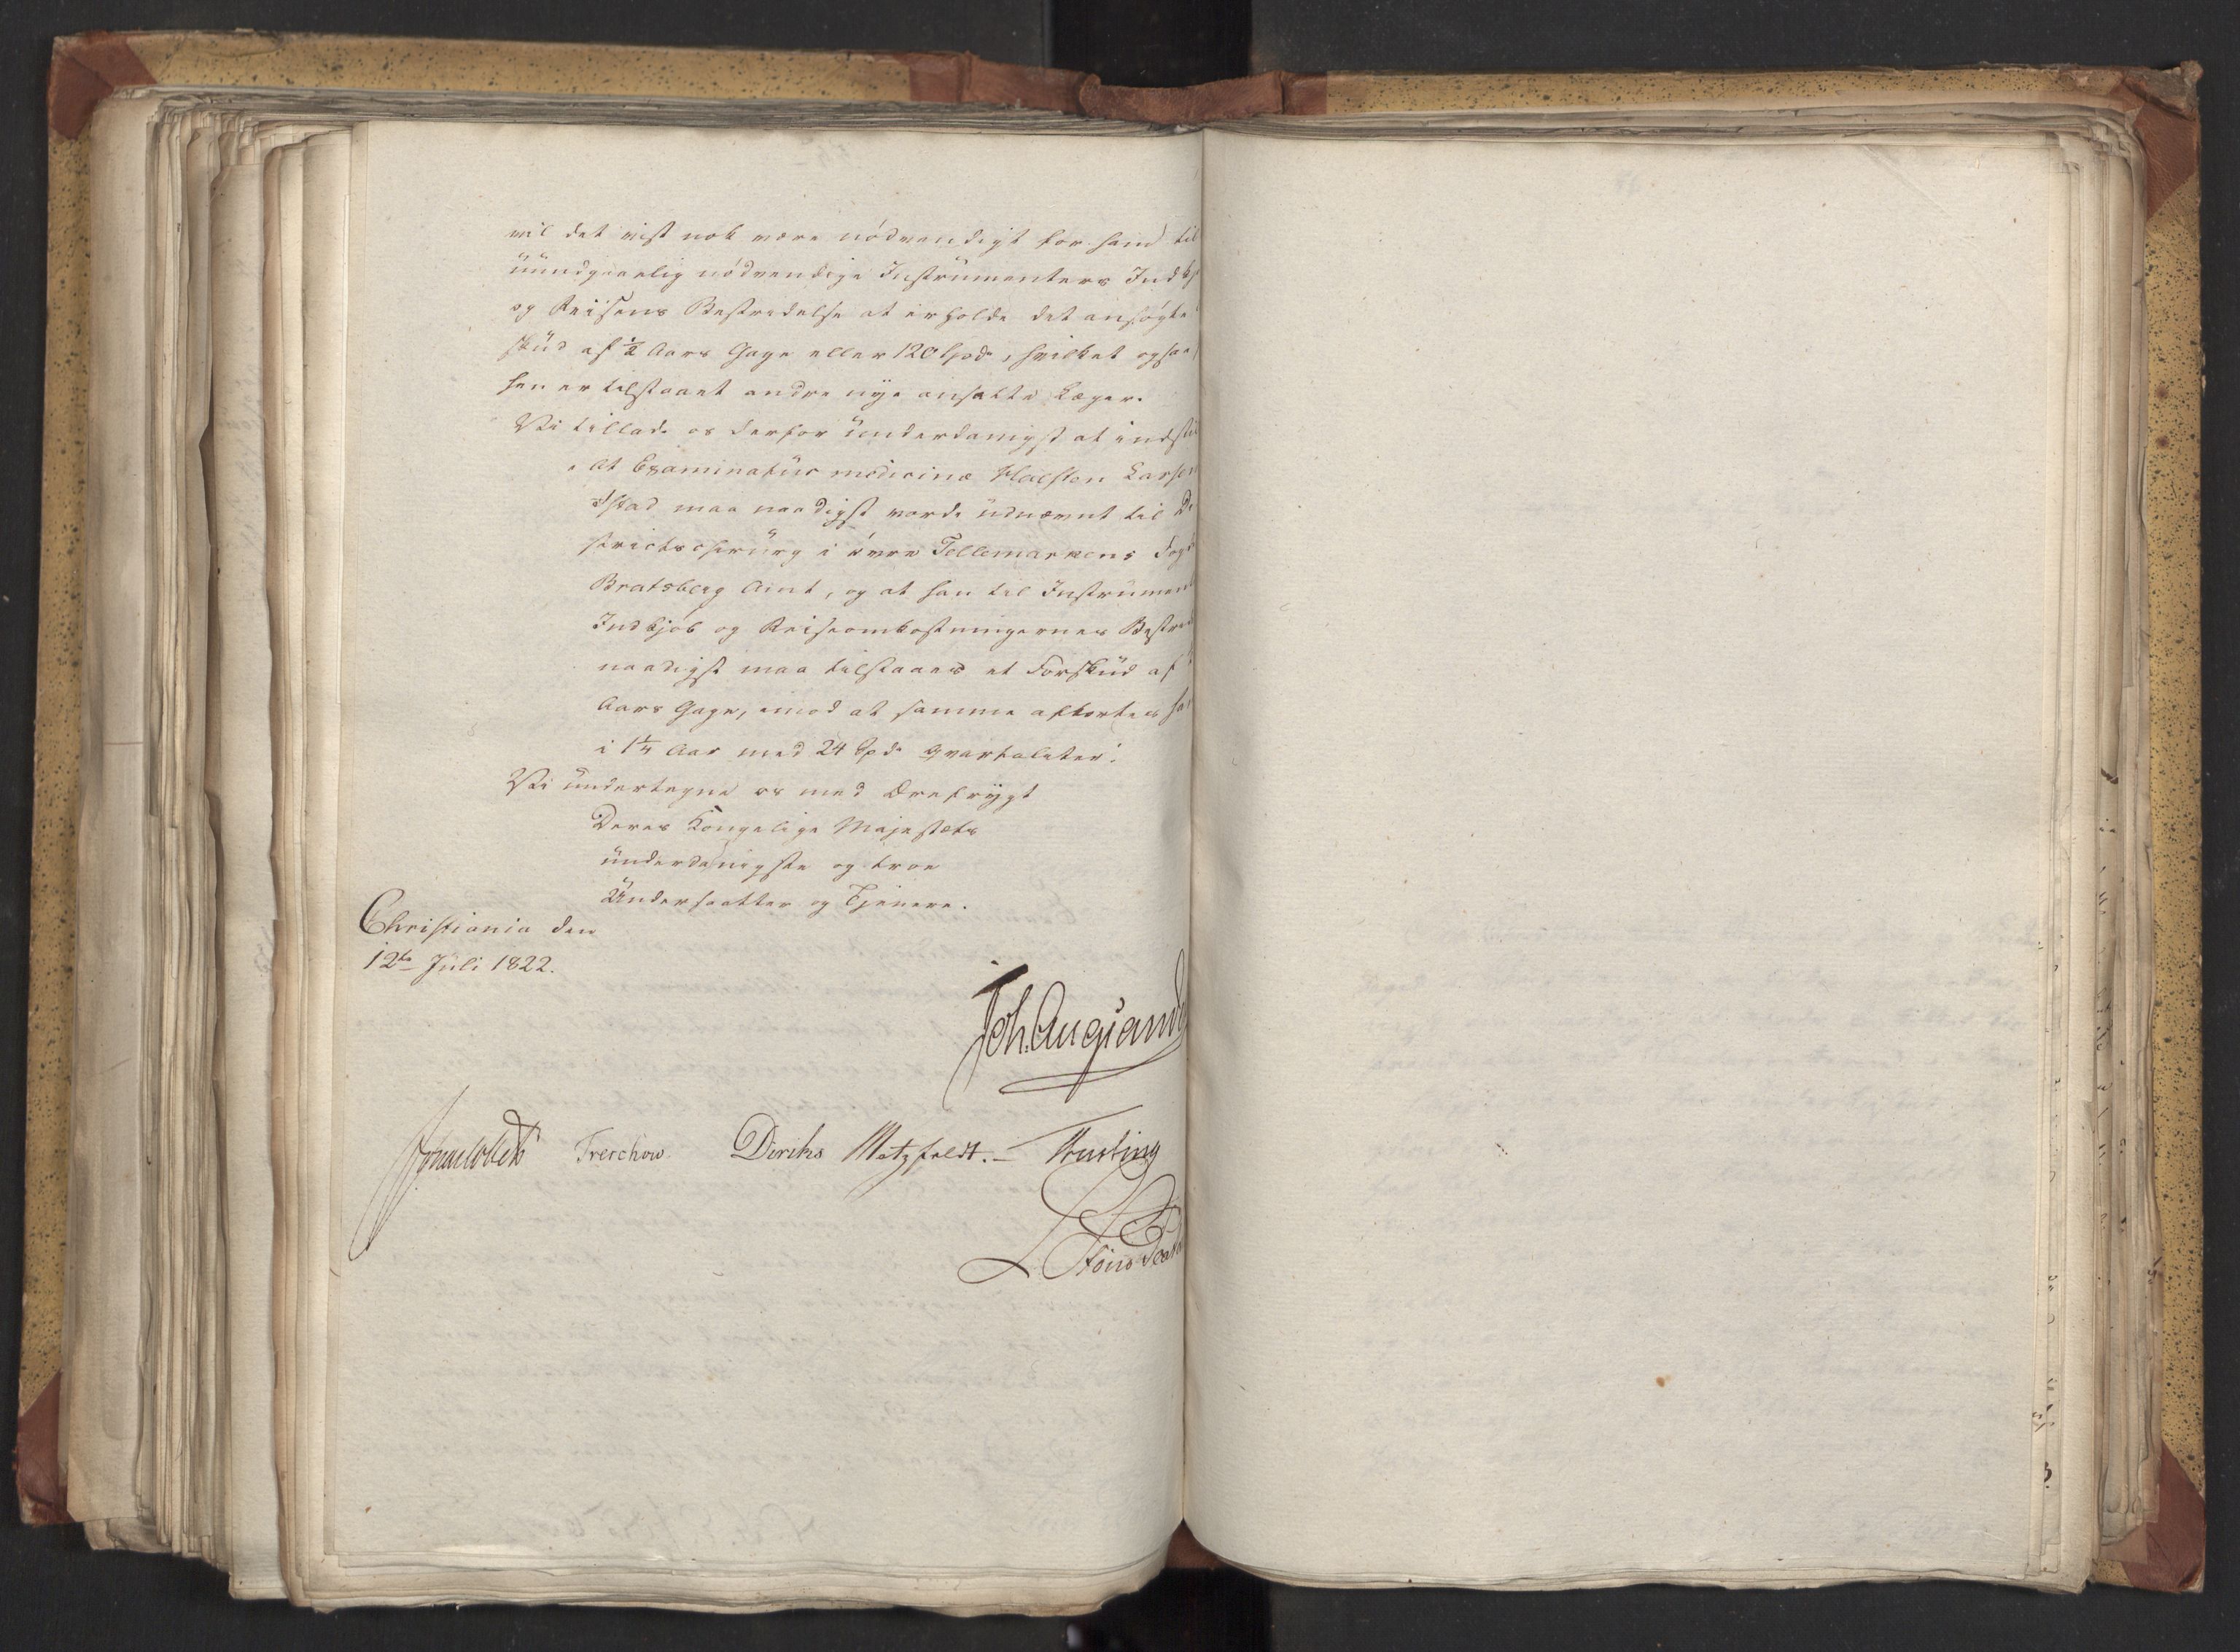 vil det vist nok være nødvendigt for ham til
uundgaaelig nødvendige Instrumenters Indkj
og Reisens Bestridelse at erholde det ansøgte
skud af ½ Aars Gage eller 120 Spd., hvilket ogsaa
hen er tilstaaet andre nye ansatte Læger.
Vi tillade os derfor underdanigst at indstil
"At Examinatus medicinæ Halsten Larsen
maa naadigst vorde udnævnt til Di
strictschirurg i øvre Tellemarkens Fogd
Bratsberg Amt, og at han til Instrument
Indkjøb og Reiseomkostningernes Bestrid
naadigst maa tilstaaes et Forskud af
Aars Gage, imod at samme afkortes ham
i 1¼ Aar med 24 Spd. qvartaliter."
Vi undertegne os med Ærefrygt
Deres Kongelige Majestæts
underdanigste og troe
Undersaatter og Tjenere.
Christiania den
12te Juli 1822.
Joh. Aug. Sand
Sommelbeck Treschow. Diriks Motzfeldt. —